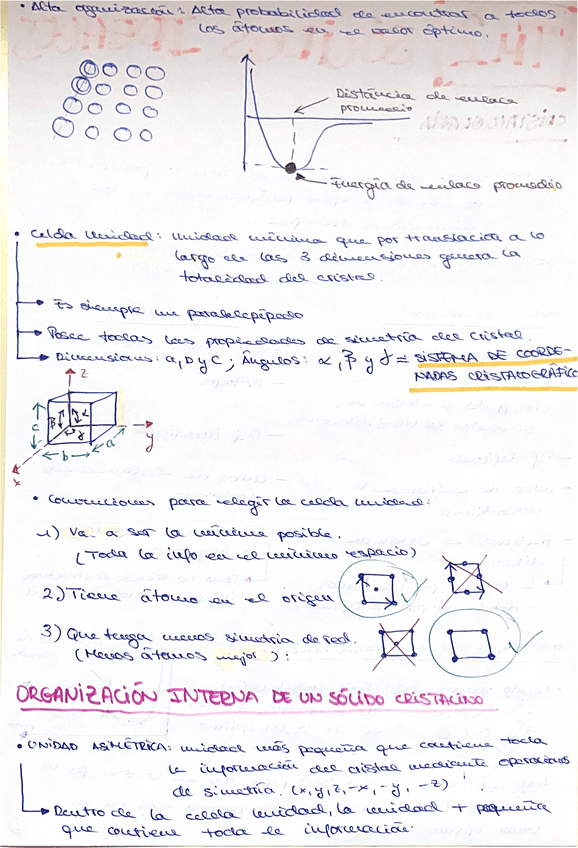 • Alta organización: Alta probabilidad de encontrar a todos
los átomos en el valor óptimo.
Distancia de enlace
promedio
Energía de enlace promedio
• Celda Unidad: Unidad mínima que por translación a lo
largo de las 3 dimensiones genera la
totalidad del cristal.
→ Es siempre un paralelepípedo
→ Posee todas las propiedades de simetría del cristal.
→ Dimensiones: a, b y c; Ángulos: α, β y γ = SISTEMA DE COORDE-
NADAS CRISTALOGRÁFICO
z
c
β α
γ
y
a
b
x
• Convenciones para elegir la celda unidad:
1) Va a ser la mínima posible.
(Toda la info en el mínimo espacio)
2) Tiene átomo en el origen
3) Que tenga menos simetría de red.
(Menos átomos mejor):
ORGANIZACIÓN INTERNA DE UN SÓLIDO CRISTALINO
• UNIDAD ASIMÉTRICA: unidad más pequeña que contiene toda
la información del cristal mediante operaciones
de simetría. (x, y, z, -x, -y, -z)
→ Dentro de la celda unidad, la unidad + pequeña
que contiene toda la información.